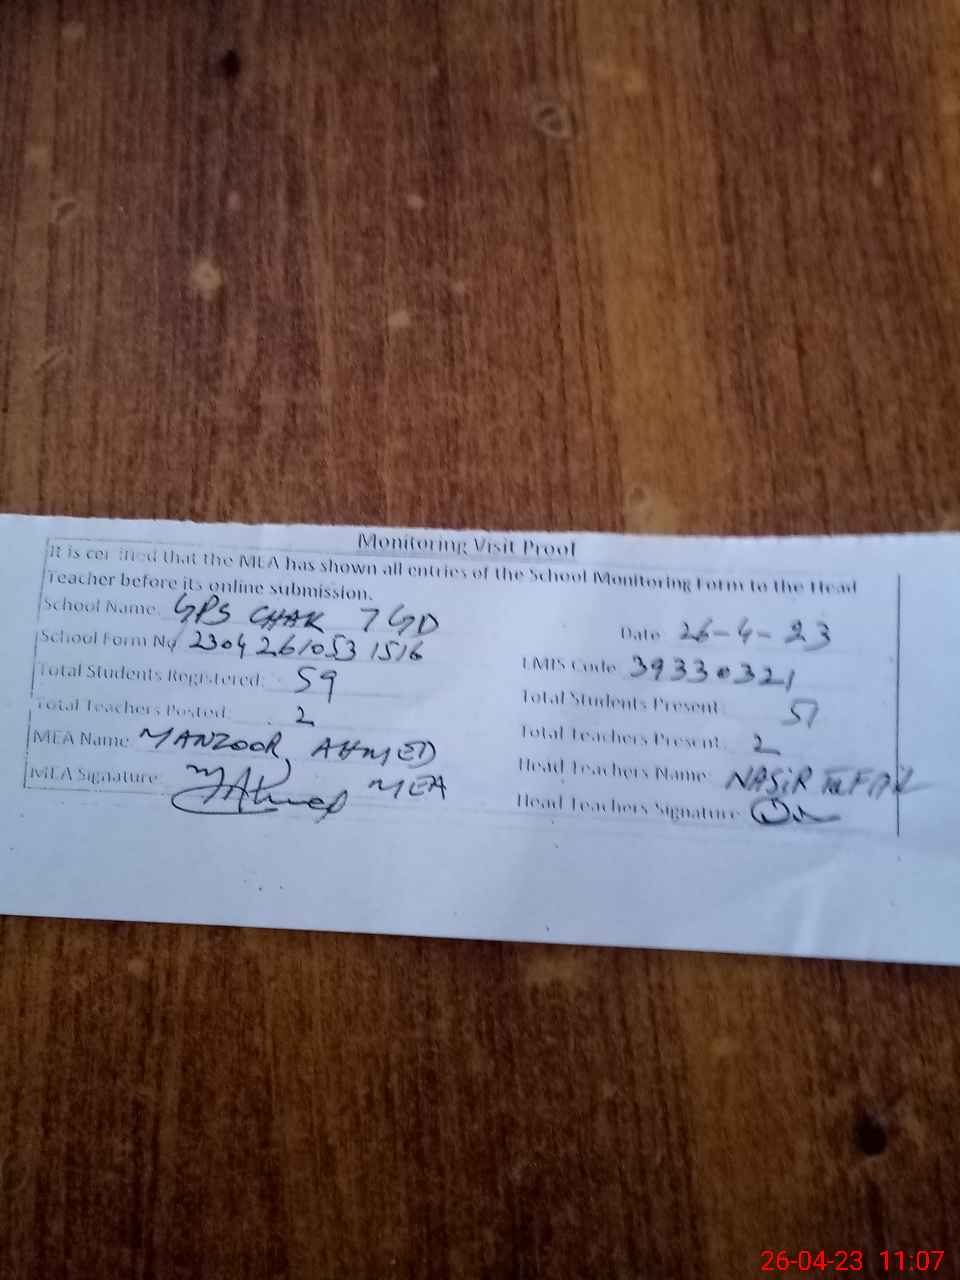 Monitoring Visit Proof
It is certified that the MEA has shown all entries of the School Monitoring Form to the Head
Teacher before its online submission.
School Name: GPS CHAK 7GD
Date 26-4-23
School Form No 2304 261053 1516
EMIS Code: 39330321
Total Students Registered: 59
Total Students Present: 51
Total Teachers Posted: 2
Total Teachers Present: 2
MEA Name: MANZOOR AHMED
Head Teachers Name: NASIR
MEA Signature: MEA
Head Teachers Signature
26-04-23 11:07